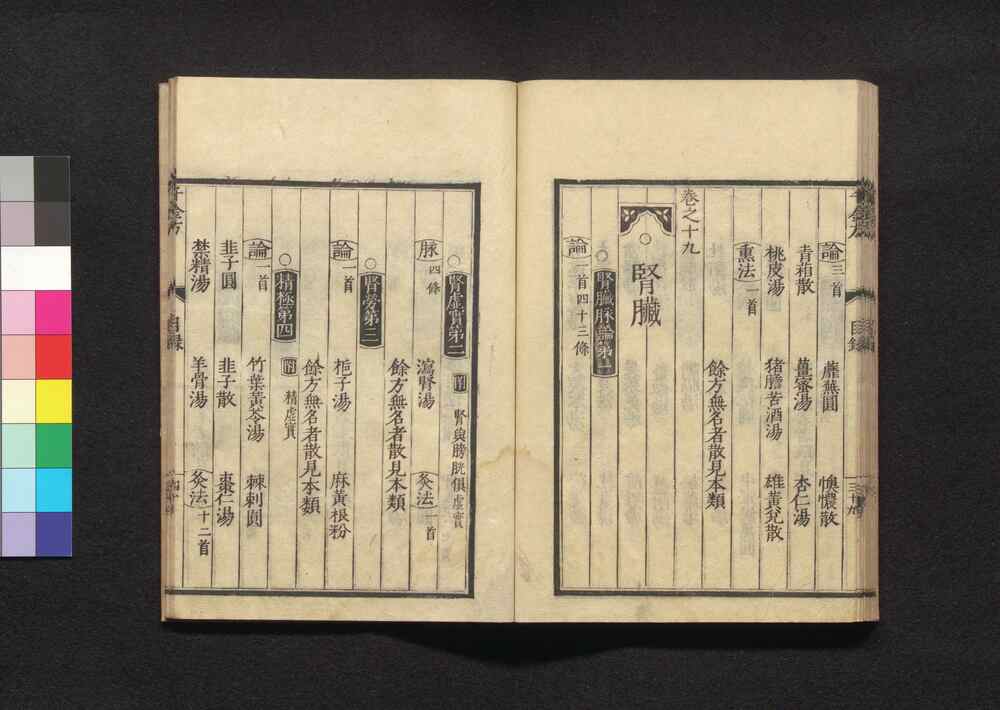 論 三首 蘼蕪圓 懊憹散
青葙散 薑蜜湯 杏仁湯
桃皮湯 猪膽苦酒湯 雄黃兌散
熏法 一首
餘方無名者散見本類
卷之十九
腎臟
腎臟脉論第一
論 一首四十三條
腎虛實第二 附 腎與膀胱俱虛實
脉 四條 瀉腎湯 灸法 一首
餘方無名者散見本類
腎勞第三
論 一首 梔子湯 麻黃根粉
餘方無名者散見本類
精極第四 附 精虛實
論 一首 竹葉黃芩湯 棘刺圓
韭子圓 韭子散 棗仁湯
禁精湯 羊骨湯 灸法 十二首
千金方 目錄